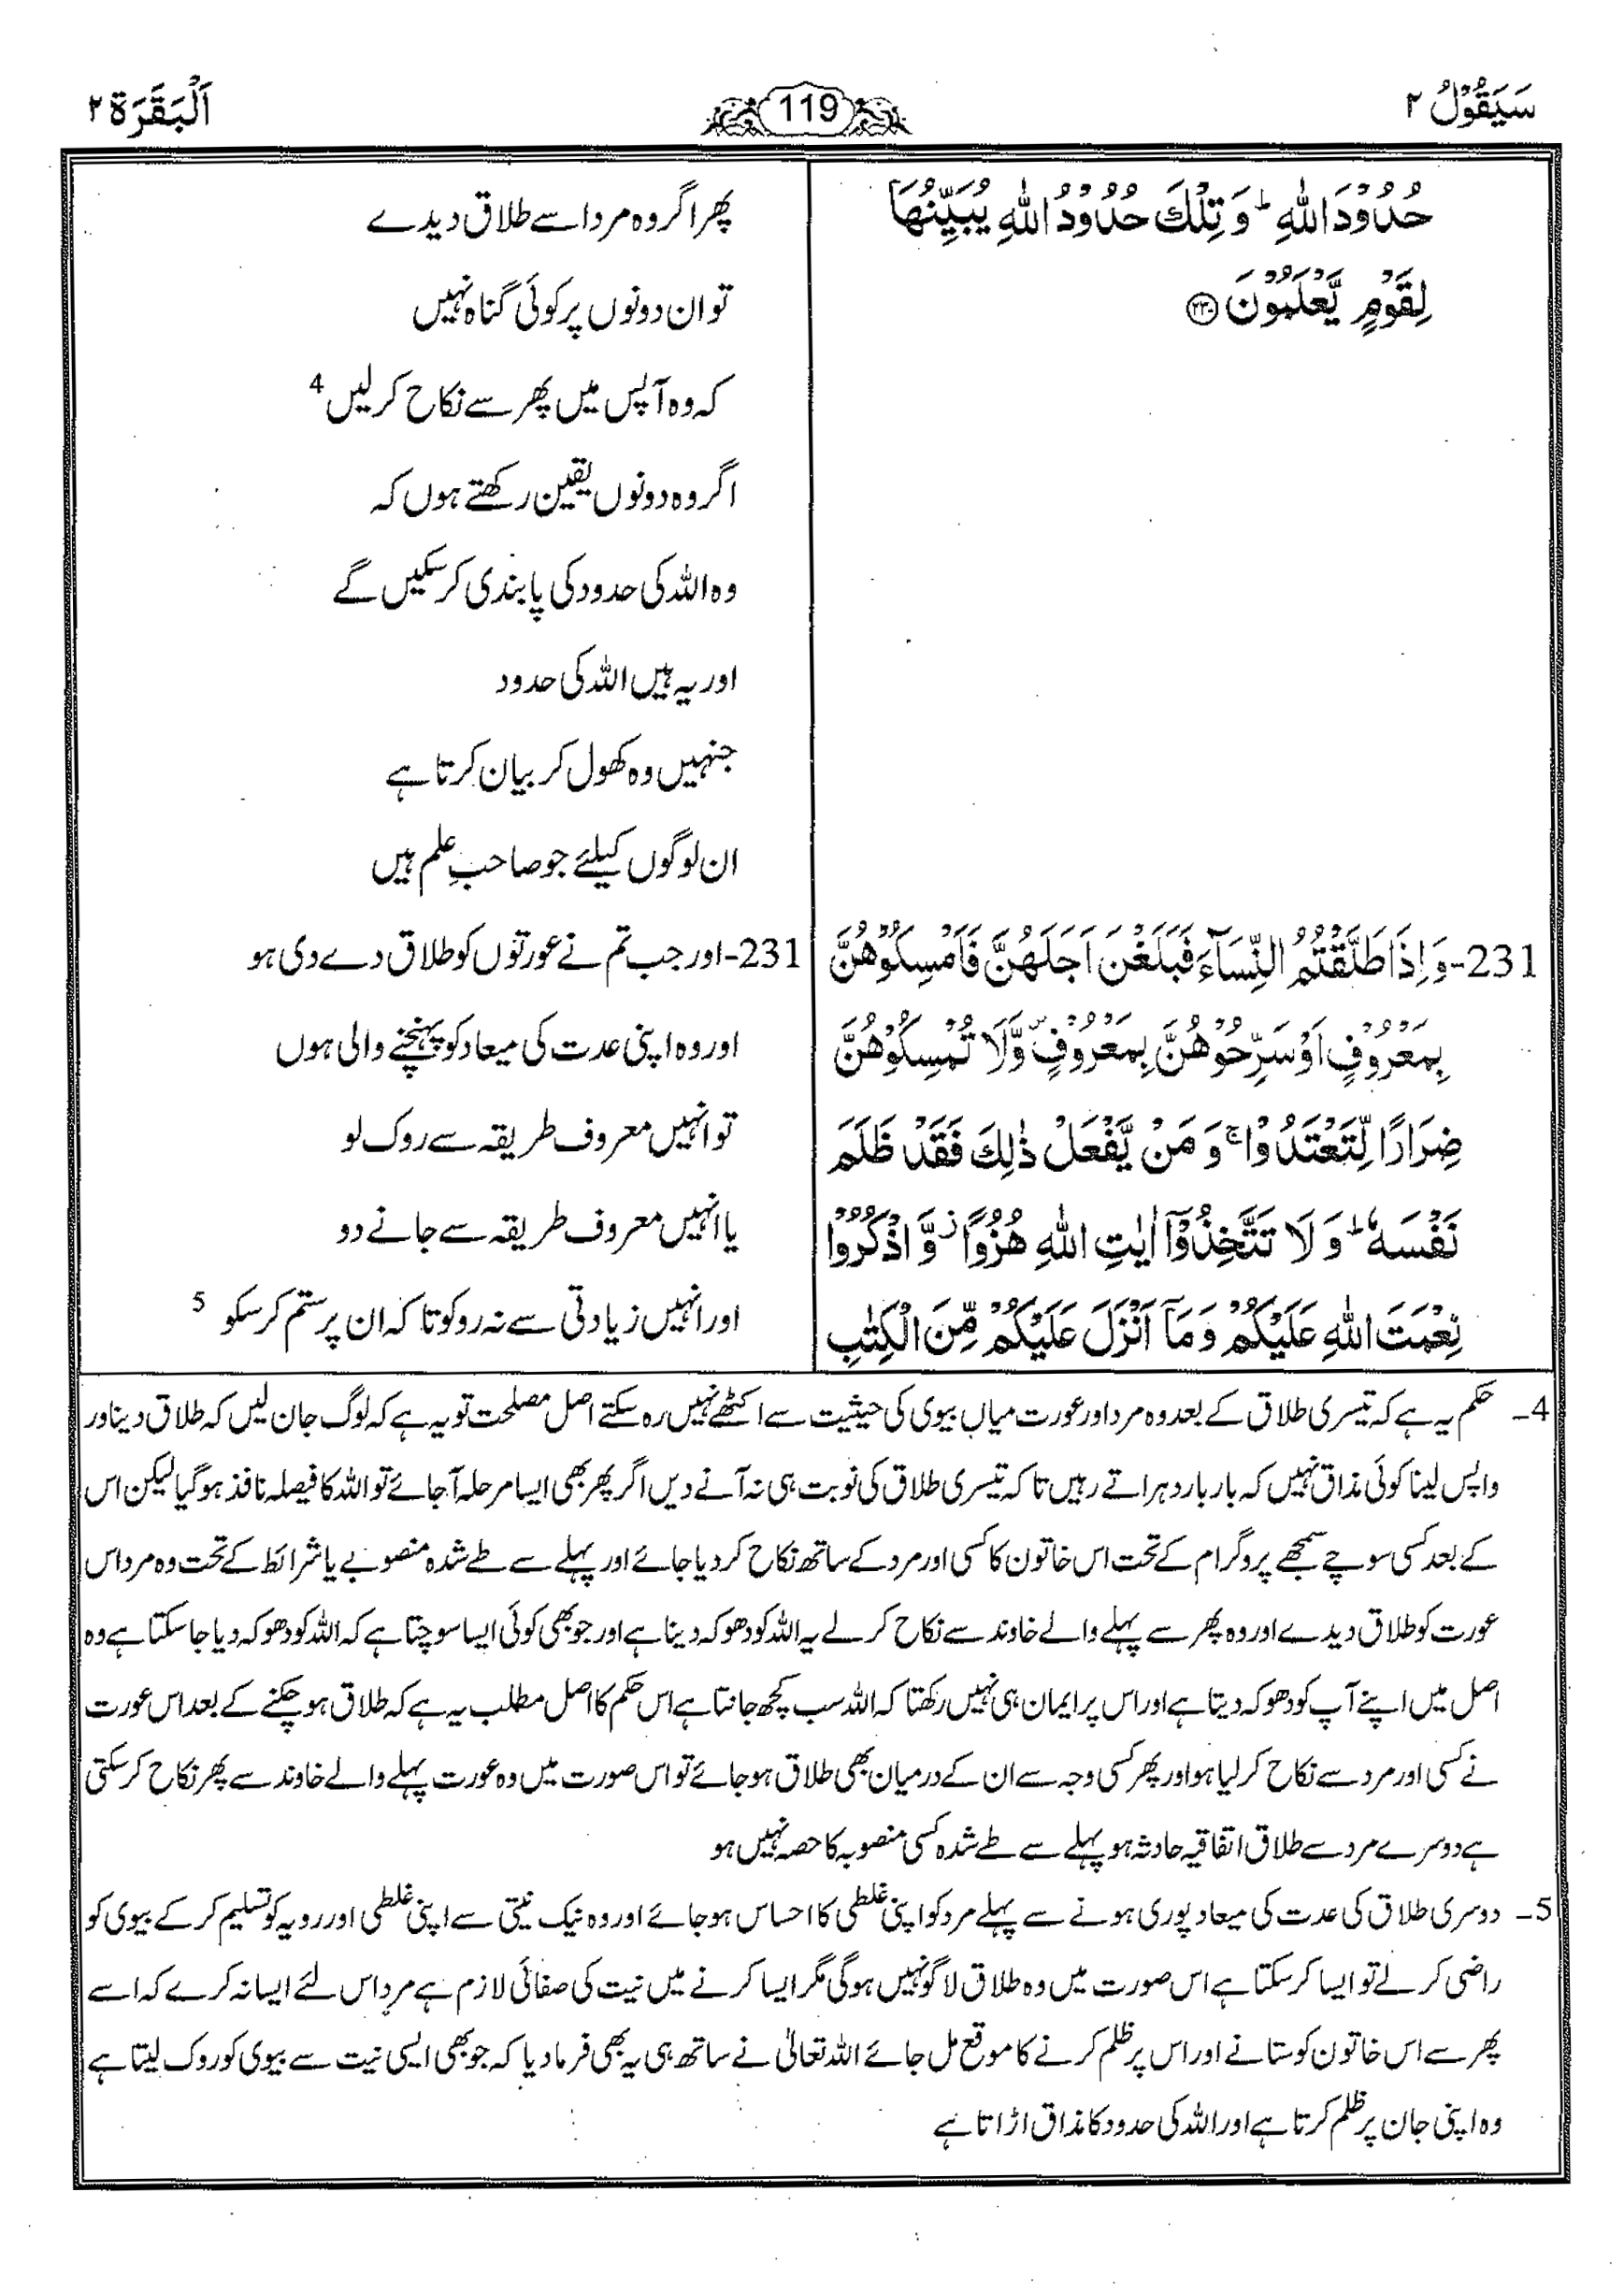 سَيَقُوْلُ ٢
119
اَلْبَقَرَة ٢
حُدُوْدَ اللّٰهِ ؕ وَ تِلْكَ حُدُوْدُ اللّٰهِ يُبَيِّنُهَا
لِقَوْمٍ يَّعْلَمُوْنَ ﴿٢٣٠﴾
231-وَ اِذَا طَلَّقْتُمُ النِّسَآءَ فَبَلَغْنَ اَجَلَهُنَّ فَاَمْسِكُوْهُنَّ
بِمَعْرُوْفٍ اَوْ سَرِّحُوْهُنَّ بِمَعْرُوْفٍ ۪ وَّلَا تُمْسِكُوْهُنَّ
ضِرَارًا لِّتَعْتَدُوْا ۚ وَ مَنْ يَّفْعَلْ ذٰلِكَ فَقَدْ ظَلَمَ
نَفْسَهٗ ؕ وَ لَا تَتَّخِذُوْۤا اٰيٰتِ اللّٰهِ هُزُوًا ۫ وَّ اذْكُرُوْا
نِعْمَتَ اللّٰهِ عَلَيْكُمْ وَ مَاۤ اَنْزَلَ عَلَيْكُمْ مِّنَ الْكِتٰبِ
پھر اگر وہ مرد اسے طلاق دیدے
تو ان دونوں پر کوئی گناہ نہیں
کہ وہ آپس میں پھر سے نکاح کر لیں 4
اگر وہ دونوں یقین رکھتے ہوں کہ
وہ اللہ کی حدود کی پابندی کر سکیں گے
اور یہ ہیں اللہ کی حدود
جنہیں وہ کھول کر بیان کرتا ہے
ان لوگوں کیلئے جو صاحبِ علم ہیں
231-اور جب تم نے عورتوں کو طلاق دے دی ہو
اور وہ اپنی عدت کی میعاد کو پہنچنے والی ہوں
تو انہیں معروف طریقہ سے روک لو
یا انہیں معروف طریقہ سے جانے دو
اور انہیں زیادتی سے نہ روکو تا کہ ان پر ستم کر سکو 5
4۔ حکم یہ ہے کہ تیسری طلاق کے بعد وہ مرد اور عورت میاں بیوی کی حیثیت سے اکٹھے نہیں رہ سکتے اصل مصلحت تو یہ ہے کہ لوگ جان لیں کہ طلاق دینا اور
واپس لینا کوئی مذاق نہیں کہ بار بار دہراتے رہیں تا کہ تیسری طلاق کی نوبت ہی نہ آنے دیں اگر پھر بھی ایسا مرحلہ آ جائے تو اللہ کا فیصلہ نافذ ہو گیا لیکن اس
کے بعد کسی سوچے سمجھے پروگرام کے تحت اس خاتون کا کسی اور مرد کے ساتھ نکاح کر دیا جائے اور پہلے سے طے شدہ منصوبے یا شرائط کے تحت وہ مرد اس
عورت کو طلاق دیدے اور وہ پھر سے پہلے والے خاوند سے نکاح کر لے یہ اللہ کو دھوکہ دینا ہے اور جو بھی کوئی ایسا سوچتا ہے کہ اللہ کو دھوکہ دیا جا سکتا ہے وہ
اصل میں اپنے آپ کو دھوکہ دیتا ہے اور اس پر ایمان ہی نہیں رکھتا کہ اللہ سب کچھ جانتا ہے اس حکم کا اصل مطلب یہ ہے کہ طلاق ہو چکنے کے بعد اس عورت
نے کسی اور مرد سے نکاح کر لیا ہو اور پھر کسی وجہ سے ان کے درمیان بھی طلاق ہو جائے تو اس صورت میں وہ عورت پہلے والے خاوند سے پھر نکاح کر سکتی
ہے دوسرے مرد سے طلاق اتفاقیہ حادثہ ہو پہلے سے طے شدہ کسی منصوبہ کا حصہ نہیں ہو
5۔ دوسری طلاق کی عدت کی میعاد پوری ہونے سے پہلے مرد کو اپنی غلطی کا احساس ہو جائے اور وہ نیک نیتی سے اپنی غلطی اور رویہ کو تسلیم کر کے بیوی کو
راضی کر لے تو ایسا کر سکتا ہے اس صورت میں وہ طلاق لاگو نہیں ہو گی مگر ایسا کرنے میں نیت کی صفائی لازم ہے مرد اس لئے ایسا نہ کرے کہ اسے
پھر سے اس خاتون کو ستانے اور اس پر ظلم کرنے کا موقع مل جائے اللہ تعالیٰ نے ساتھ ہی یہ بھی فرما دیا کہ جو بھی ایسی نیت سے بیوی کو روک لیتا ہے
وہ اپنی جان پر ظلم کرتا ہے اور اللہ کی حدود کا مذاق اڑاتا ہے